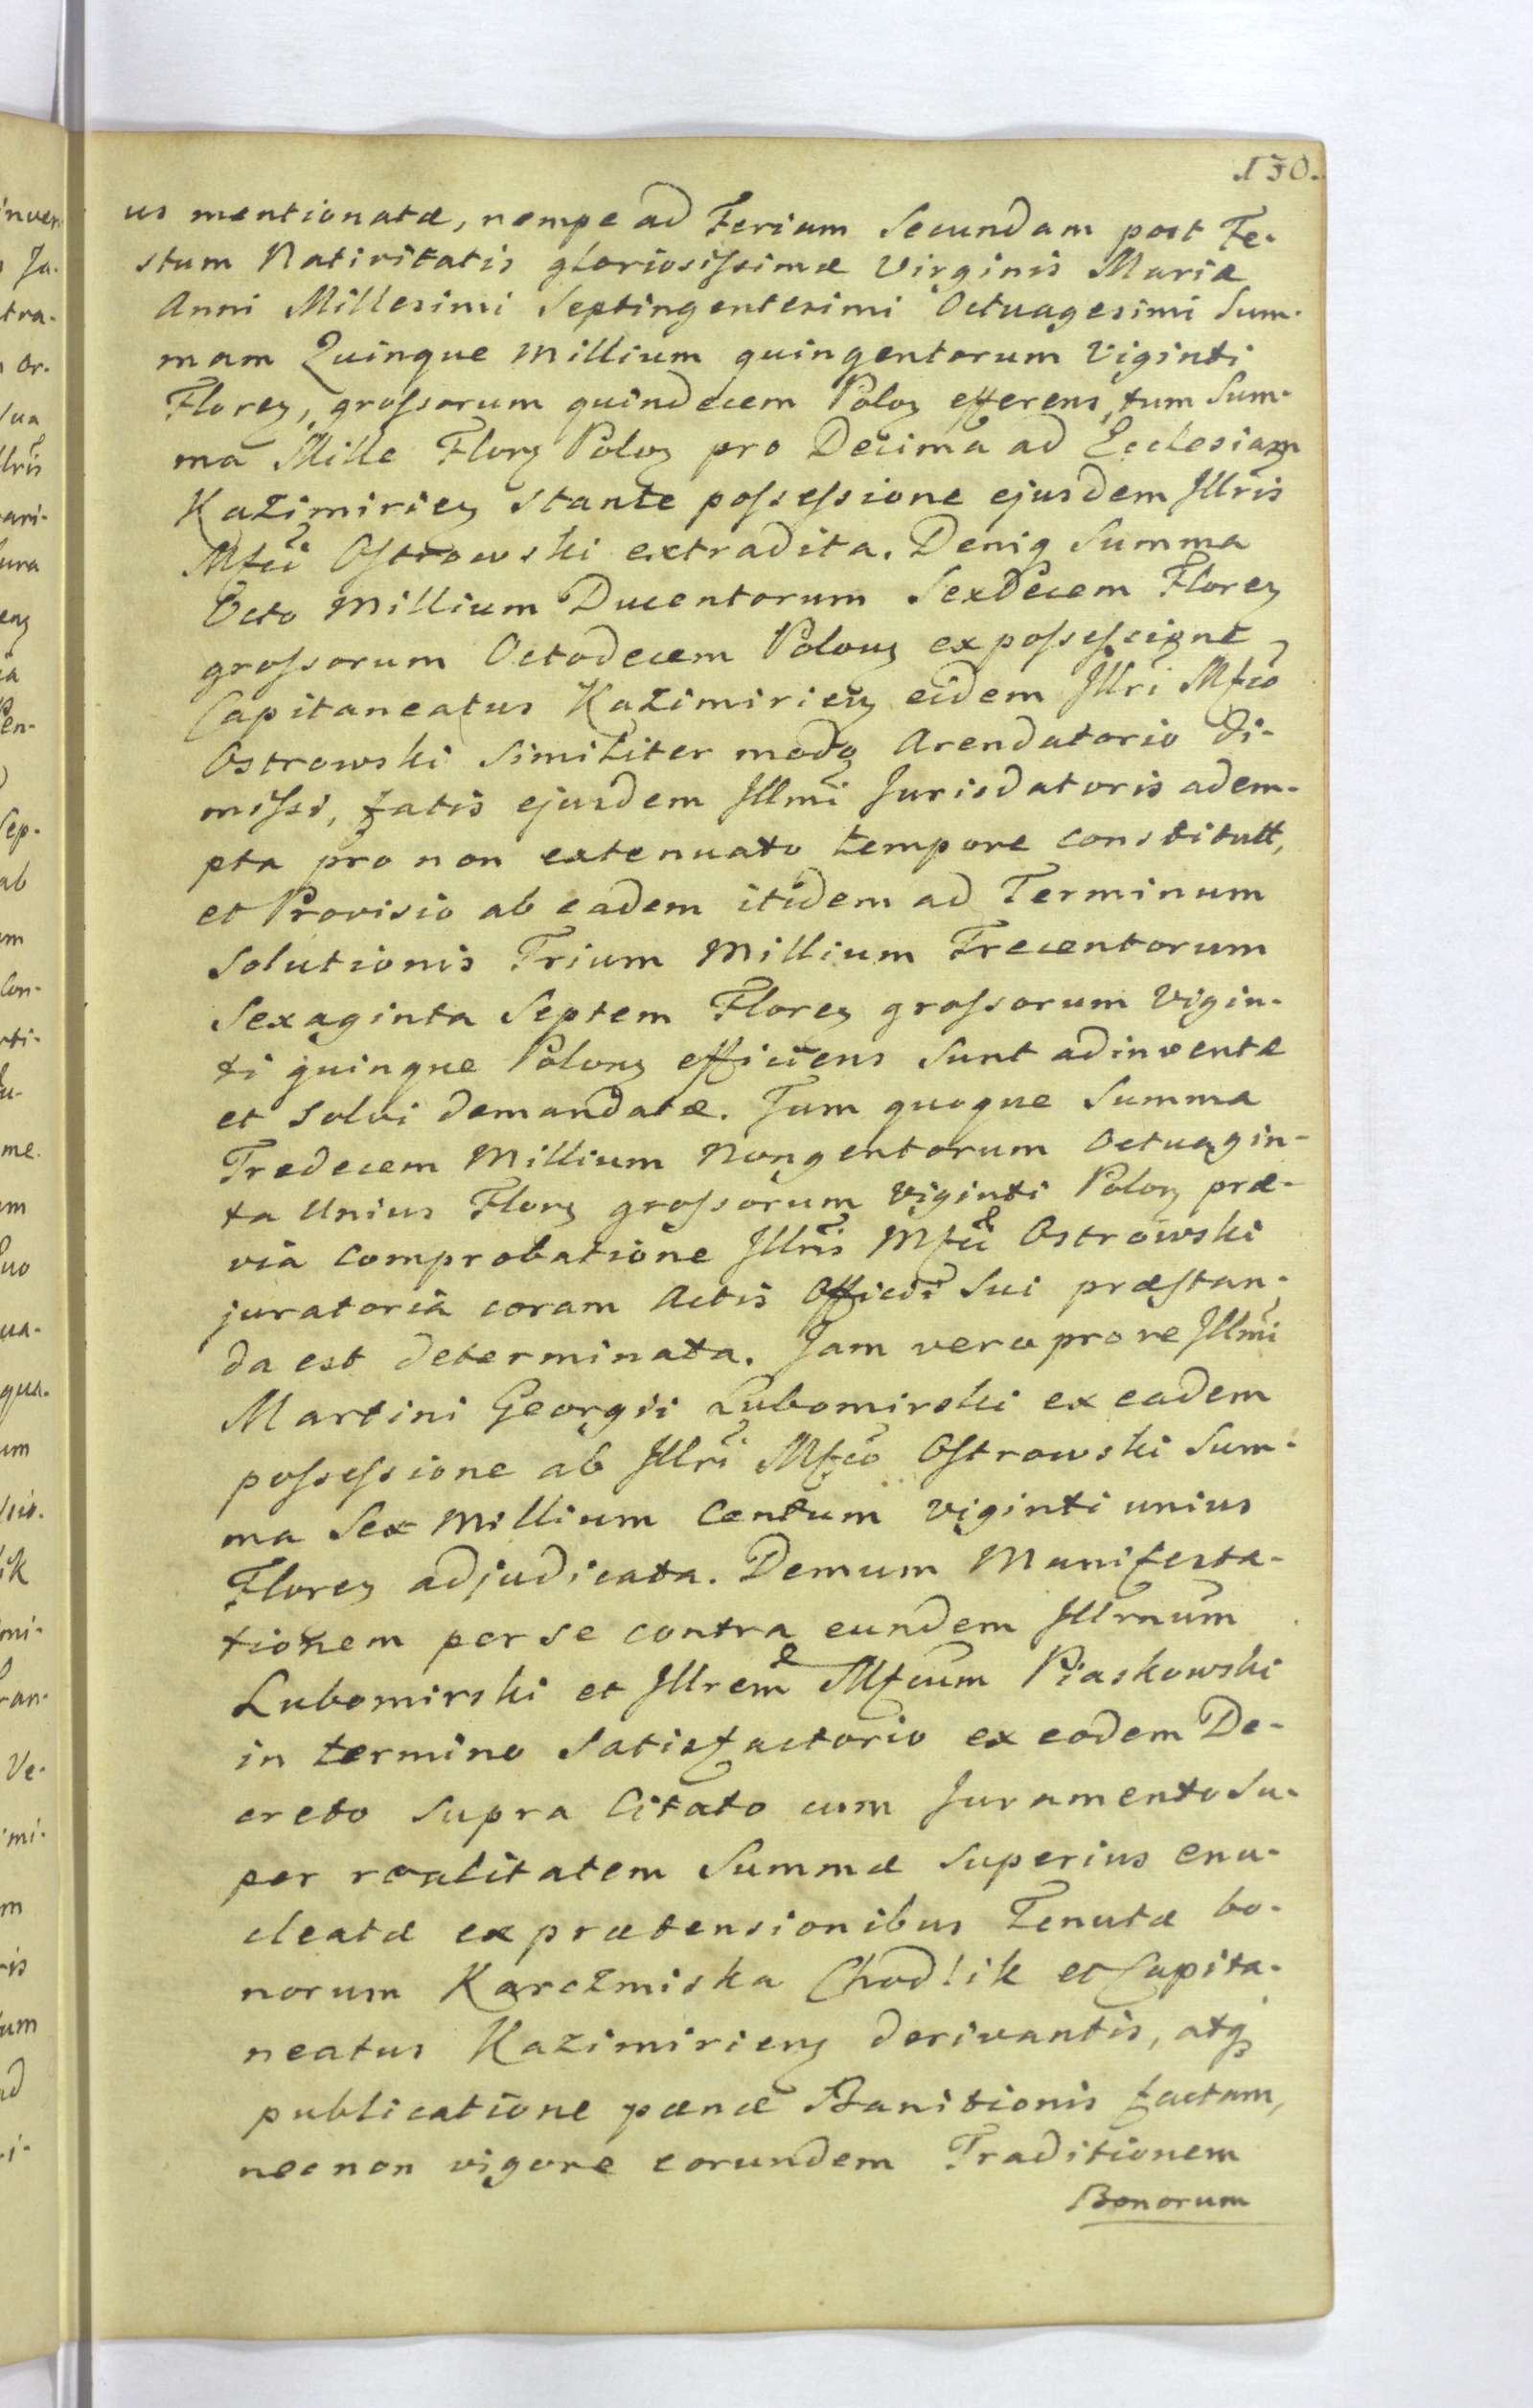 .130.
us mentionatæ, nempe ad Feriam Secundam post Fe-
stum Nativitatis gloriosissimæ Virginis Mariæ
Anni Millesimi Septingentesimi Octuagesimi Sum-
mam Quinque Millium quingentorum Viginti
Floreṅ, grossorum quindecem Poloṅ efferens, tum Sum-
ma Mille Floṙ Poloṅ pro Decima ad Ecclesiam
Kazimirien̄ stante possessione ejusdem Illris
Mfci Ostrowski extradita. Deniq Summa
Octo Millium Ducentorum Sexdecem Floren̄
grossorum Octodecem Polon̄ ex possessione
Capitaneatus Kazimirien̄ eidem Illri Mfco
Ostrowski similiter modo Arendatorio di-
missi, fatis ejusdem Illmi Jurisdatoris adem-
pta pro non extenuato tempore constitutt,
et Provisio ab eadem itidem ad Terminum
Solutionis Trium Millium Trecentorum
Sexaginta Septem Floren̄ grossorum Vigin-
ti quinque Polon̄ efficiens sunt adinventæ
et solvi demandatæ. Tum quoque Summa
Tredecem Millium Nongentorum Octuagin-
ta Unius Floṙ grossorum Viginti Polon̄ præ-
via comprobatione Illris Mfci Ostrowski
juratoria coram Actis Officii sui præstan-
da est determinata. Jam vero pro re Illmi
Martini Georgii Lubomirski ex eadem
possessione ab Illri Mfco Ostrowski Sum-
ma Sex Millium Centum Viginti unius
Floren̄ adjudicata. Demum Manifesta-
tionem per se contra eundem Illmum
Lubomirski et Illrem Mfcum Piaskowski
in termino Satisfactorio ex eodem De-
creto supra Citato cum Juramento su-
per realitatem Summæ superius enu-
cleatæ ex prætensionibus Tenutæ bo-
norum Karczmiska Chodlik et Capita-
neatus Kazimirien̄ derivantis, atq
publicatione pænæ Banitionis factam,
nec non vigore eorundem Traditionem
Bonorum